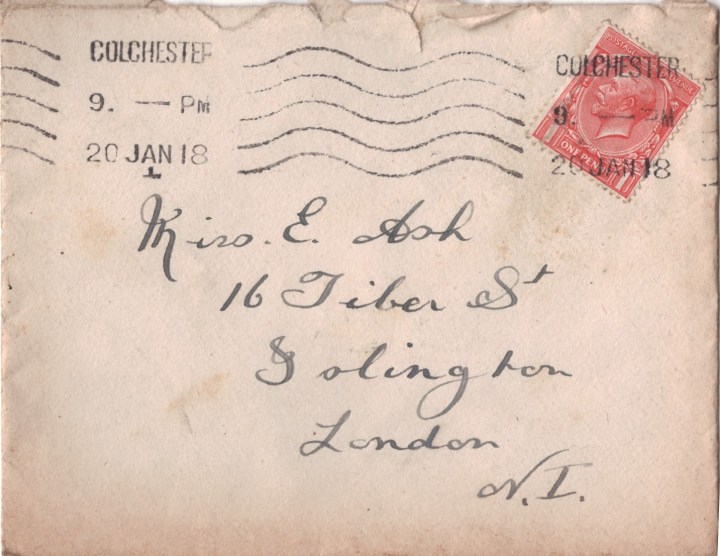 COLCHESTER
9. — PM
20 JAN 18
COLCHESTER
9. — PM
20 JAN 18
POSTAGE
ONE PENNY
Miss. E. Ash
16 Tiber St
Islington
London
N.I.